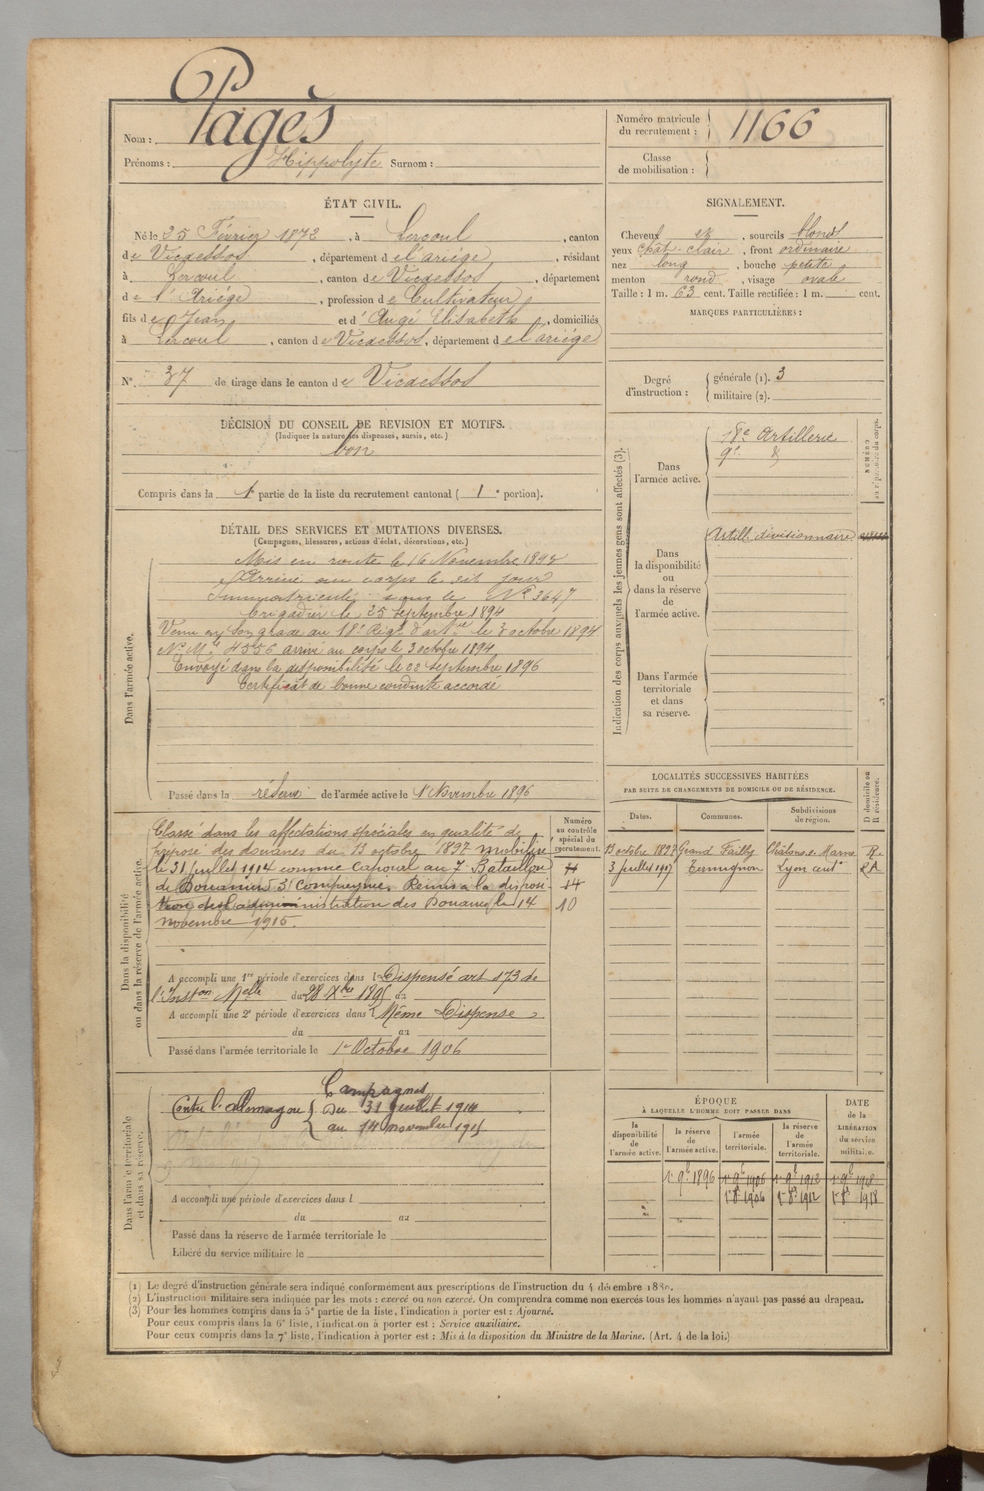 Nom : Pagès
Prénoms : Hippolyte Surnom :
Numéro matricule du recrutement : 1166
Classe de mobilisation :
ÉTAT CIVIL.
Né le 25 Février 1872, à Lercoul, canton
de Vicdessos, département de l'ariége, résidant
à Lercoul, canton de Vicdessos, département
de l'Ariége, profession de Cultivateur
fils de Jean et d'Augé Elisabeth, domiciliés
à Lercoul, canton de Vicdessos, département de l'ariége
N° 37 de tirage dans le canton de Vicdessos
SIGNALEMENT.
Cheveux et, sourcils blonds
yeux chat. clair, front ordinaire
nez long, bouche petite
menton rond, visage ovale
Taille : 1 m. 63 cent. Taille rectifiée : 1 m. cent.
MARQUES PARTICULIÈRES :
Degré d'instruction :
générale (1). 3
militaire (2).
DÉCISION DU CONSEIL DE REVISION ET MOTIFS.
(Indiquer la nature des dispenses, sursis, etc.)
bon
Compris dans la 1e partie de la liste du recrutement cantonal ( 1e portion).
DÉTAIL DES SERVICES ET MUTATIONS DIVERSES.
(Campagnes, blessures, actions d'éclat, décorations, etc.)
Dans l'armée active.
Mis en route le 16 Novembre 1893
Arrivé au corps le dit jour
Immatriculé sous le N° 3647
brigadier le 25 septembre 1894
Venu en son grade au 18e Régt d'artie le 3 octobre 1894
N° Mle 4556 arrivé au corps le 3 octobre 1894
Envoyé dans la disponibilité le 22 septembre 1896
Certificat de bonne conduite accordé
Passé dans la réserve de l'armée active le 1er Novembre 1896
Indication des corps auxquels les jeunes gens sont affectés (3).
Dans l'armée active.
18e Artillerie
9e
NUMÉRO
Dans la disponibilité ou dans la réserve de l'armée active.
Artill. divisionnaire
Dans l'armée territoriale et dans sa réserve.
LOCALITÉS SUCCESSIVES HABITÉES
PAR SUITE DE CHANGEMENTS DE DOMICILE OU DE RÉSIDENCE.
Dates. Communes. Subdivisions de région. D domicile ou R résidence.
13 octobre 1897 Grand Failly Châlons s. Marne R.
3 juillet 1917 Lyon cent RA
Dans la disponibilité ou dans la réserve de l'armée active.
Numéro au contrôle spécial du recrutement.
Classé dans les affectations spéciales en qualité de
préposé des douanes du 13 octobre 1897 Mobilisé
le 31 juillet 1914 comme Caporal au 7e Bataillon
de Douaniers 3e Compagnie. Remis à la disposi-
tion de l'administration des Douanes le 14
novembre 1915.
11
14
10
A accompli une 1re période d'exercices dans l Dispensé art 173 de
l'Inston Melle du 28 Xbre 1895 au
A accompli une 2e période d'exercices dans l Même Dispense
du au
Passé dans l'armée territoriale le 1er Octobre 1906
Dans l'armée territoriale et dans sa réserve.
Campagnes
Contre l'Allemagne du 31 juillet 1914
au 14 novembre 1915
A accompli une période d'exercices dans l
du au
Passé dans la réserve de l'armée territoriale le
Libéré du service militaire le
ÉPOQUE
À LAQUELLE L'HOMME DOIT PASSER DANS
DATE de la LIBÉRATION du service militaire.
la disponibilité de l'armée active. la réserve de l'armée active. l'armée territoriale. la réserve de l'armée territoriale.
1er 9e 1896 1er 9e 1906 1er 9e 1912 1er 9e 1918
1er 8e 1906 1er 8e 1912 1er 8e 1918
(1) Le degré d'instruction générale sera indiqué conformément aux prescriptions de l'instruction du 4 décembre 1889.
(2) L'instruction militaire sera indiquée par les mots : exercé ou non exercé. On comprendra comme non exercés tous les hommes n'ayant pas passé au drapeau.
(3) Pour les hommes compris dans la 5e partie de la liste, l'indication à porter est : Ajourné.
Pour ceux compris dans la 6e liste, l'indication à porter est : Service auxiliaire.
Pour ceux compris dans la 7e liste, l'indication à porter est : Mis à la disposition du Ministre de la Marine. (Art. 4 de la loi.)